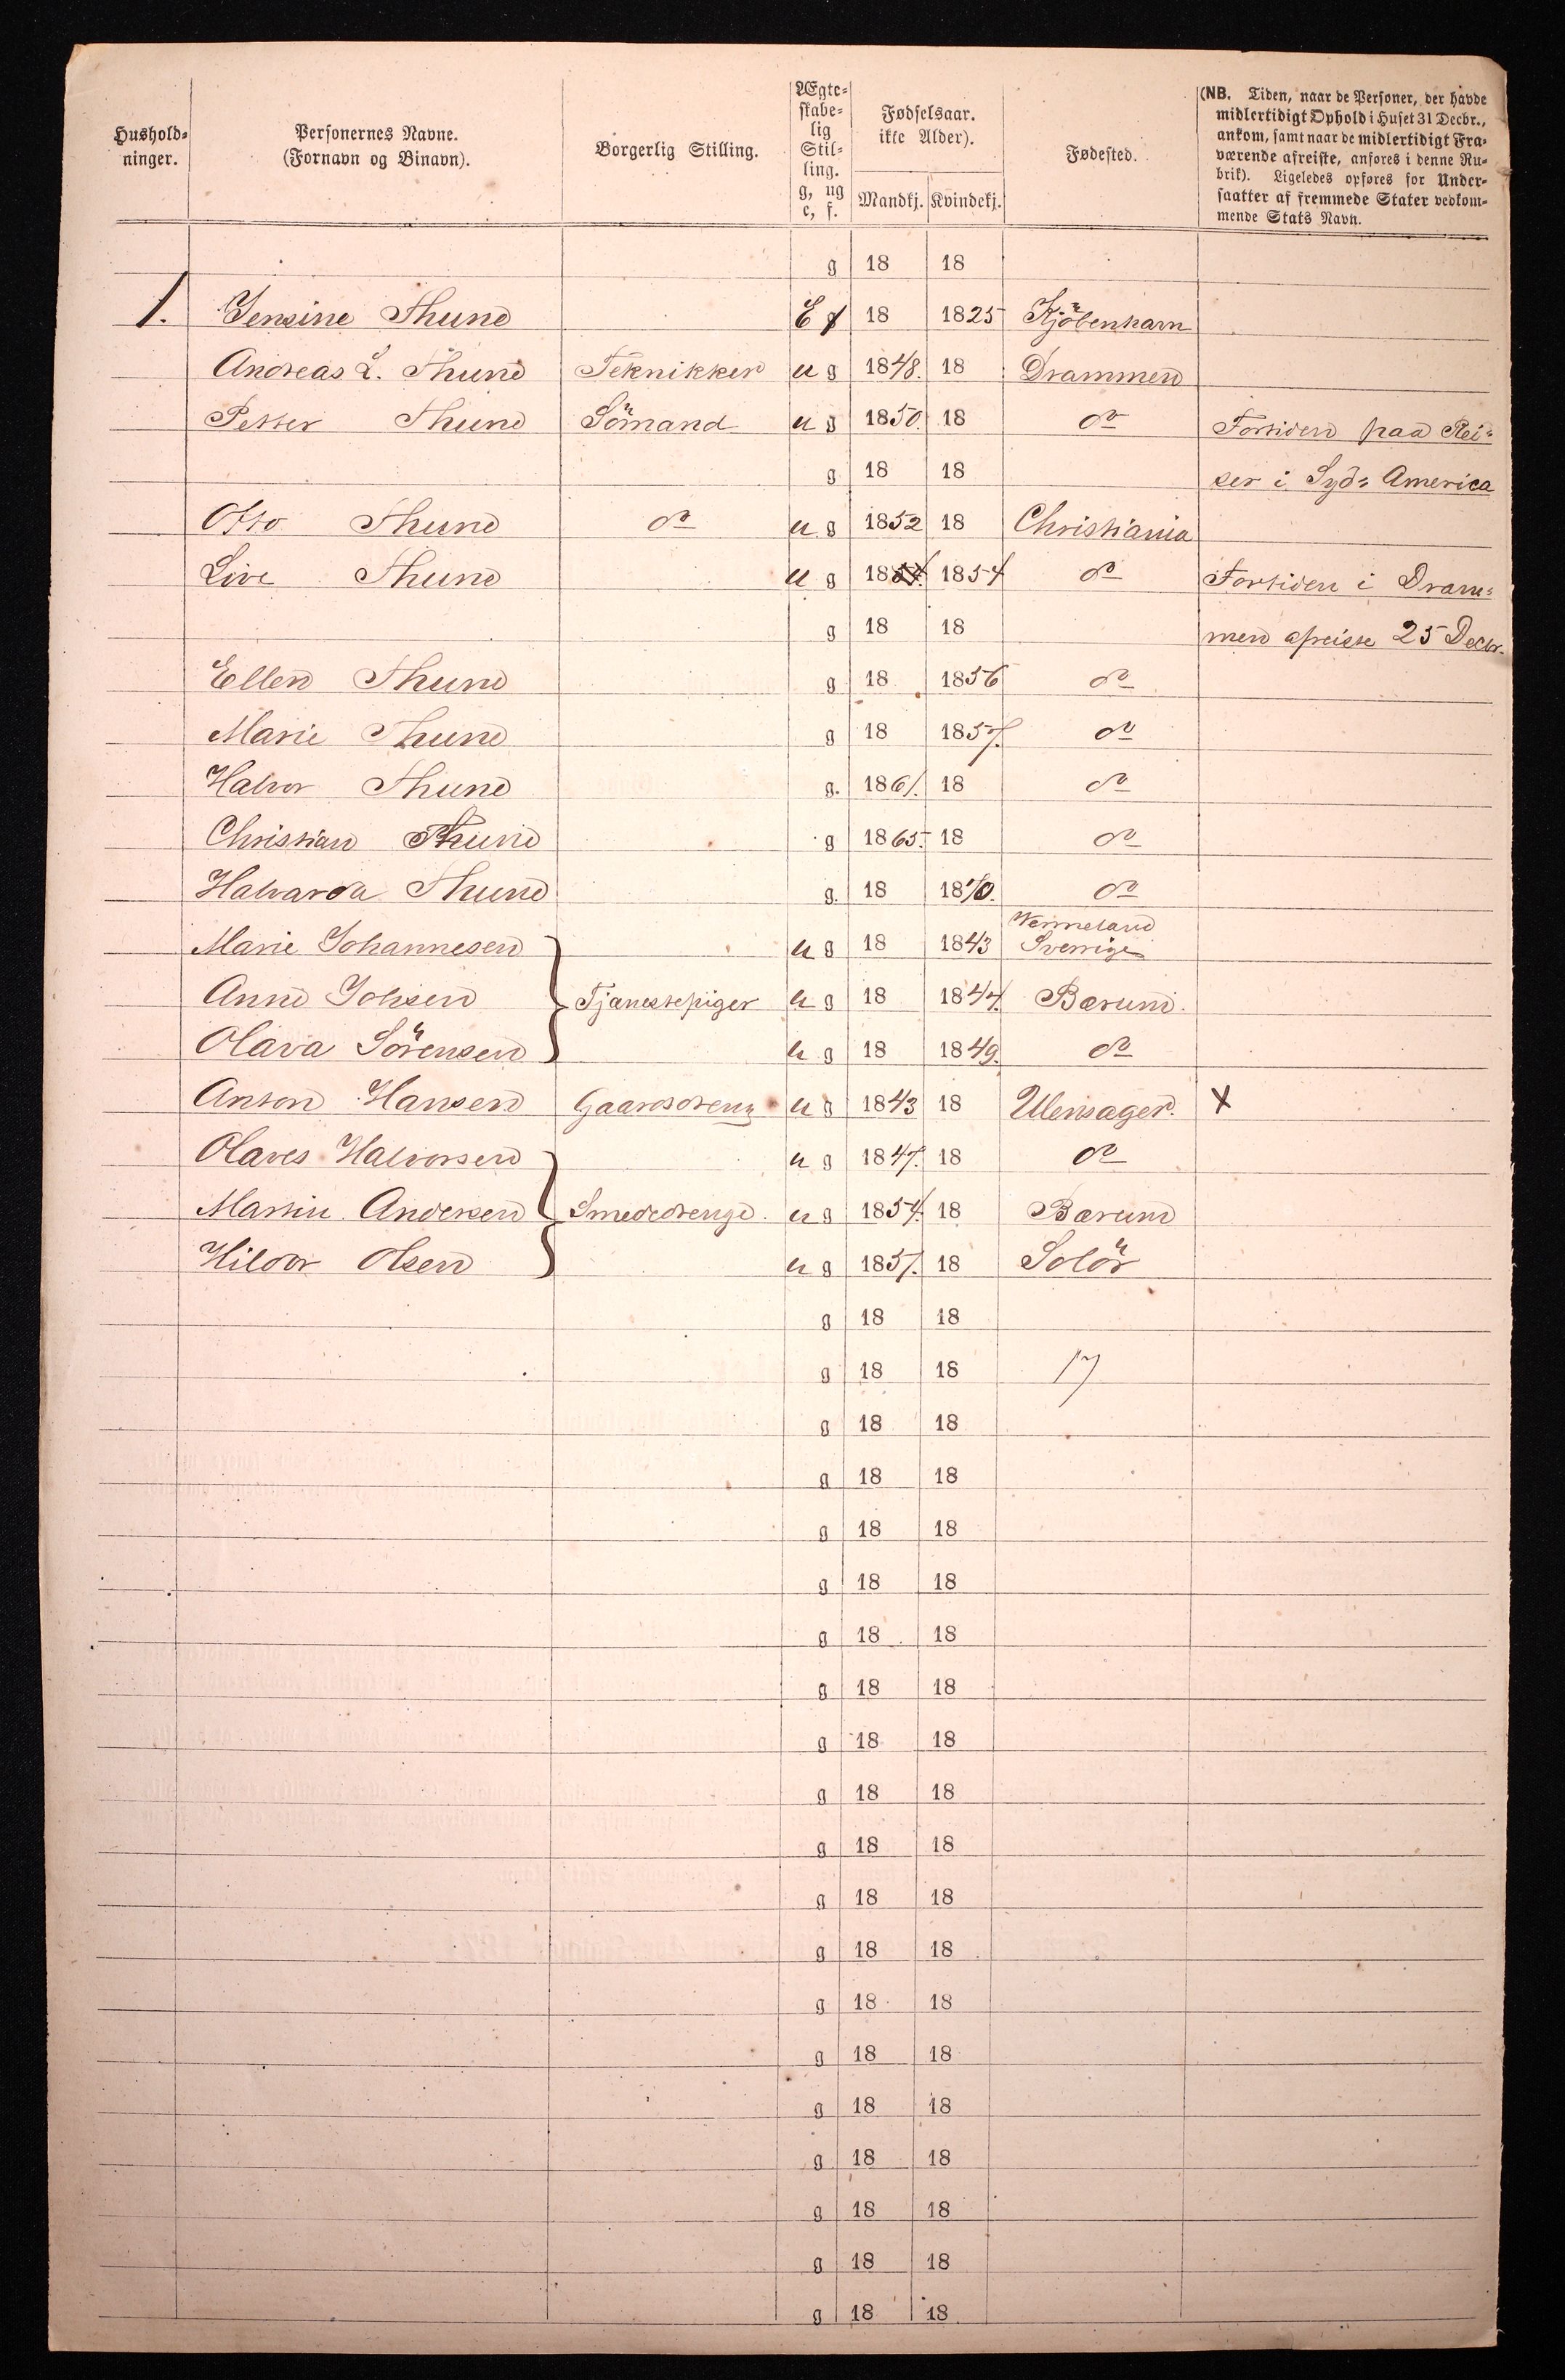 Hushold-
ninger.
Personernes Navne.
(Fornavn og Binavn).
Borgerlig Stilling.
Ægte-
skabe-
lig
Stil-
ling.
g, ug
e, f.
Fødselsaar.
ikke Alder).
Mandkj. Kvindekj.
Fødested.
(NB. Tiden, naar de Personer, der havde
midlertidigt Ophold i Huset 31 Decbr.,
ankom, samt naar de midlertidigt Fra-
værende afreiste, anføres i denne Ru-
brik). Ligeledes opføres for Under-
saatter af fremmede Stater vedkom-
mende Stats Navn.
g 18 18
1. Jensine Thune E g 18 1825 Kjöbenhavn
Andreas L. Thune Teknikker u g 1848. 18 Drammen
Petter Thune Sömand u g 1850. 18 do Fortiden paa Rei-
g 18 18 ser i Syd- America
Otto Thune do u g 1852 18 Christiania
Live Thune u g 18 1854 do Fortiden i Dram-
g 18 18 men afreiste 25 Decbr.
Ellen Thune g 18 1856 do
Marie Thune g 18 1857. do
Halvor Thune g. 1861. 18 do
Christian Thune g 1865. 18 do
Halvarda Thune g. 18 1870. do
Marie Johannesen u g 18 1843 Vermeland Sverrige
Anne Johsen Tjenestepiger u g 18 1847. Bærum.
Olava Sörensen u g 18 1849. do
Anton Hansen Gaardsdreng u g 1843 18 Ulensager. X
Olaves Halvorsen u g 1847. 18 do
Martin Andersen Smededrenge. u g 1854. 18 Bærum
Hildor Olsen u g 1857. 18 Solör
g 18 18
g 18 18 17
g 18 18
g 18 18
g 18 18
g 18 18
g 18 18
g 18 18
g 18 18
g 18 18
g 18 18
g 18 18
g 18 18
g 18 18
g 18 18
g 18 18
g 18 18
g 18 18
g 18 18
g 18 18